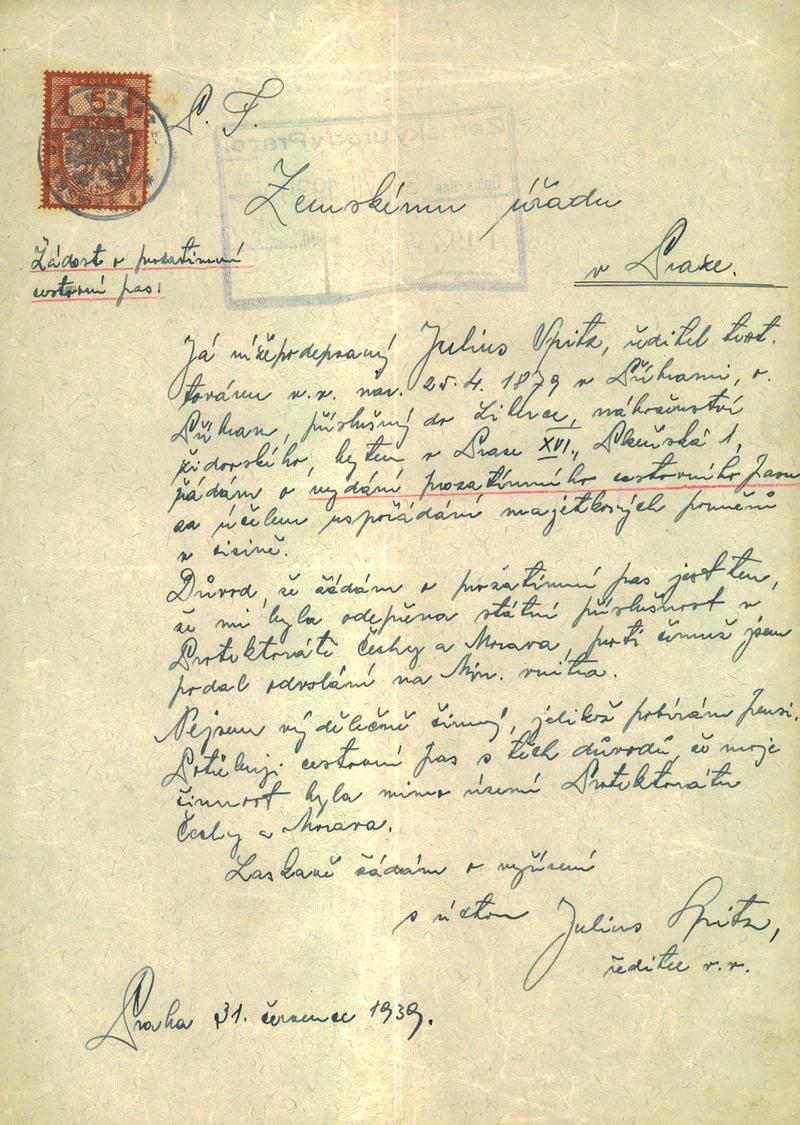 KOLEK
5
P. T.
Zemskému úřadu
v Praze.
Žádost o prozatimní
cestovní pas.
Já níže podepsaný Julius Spitz, ředitel
továren v.v. nar. 25.4. 1879 v
příslušný do Žilovce, náboženství
židovského, bytem v Praze XVI., 1,
žádám o vydání prozatímního cestovního pasu
za účelem uspořádání majetkových poměrů
v cizině.
Důvod, že žádám o prozatimní pas jest ten,
že mi byla odepřena státní příslušnost v
Protektorátě Čechy a Morava, proti čemuž jsem
podal odvolání na Min. vnitra.
Nejsem výdělečně činný, jelikož pobírám pensi.
Potřebuji cestovní pas z těch důvodů, že moje
činnost byla mimo území Protektorátu
Čechy a Morava.
Laskavě žádám o vyřízení
s úctou Julius Spitz,
ředitel v.v.
Praha 31. července 1939.